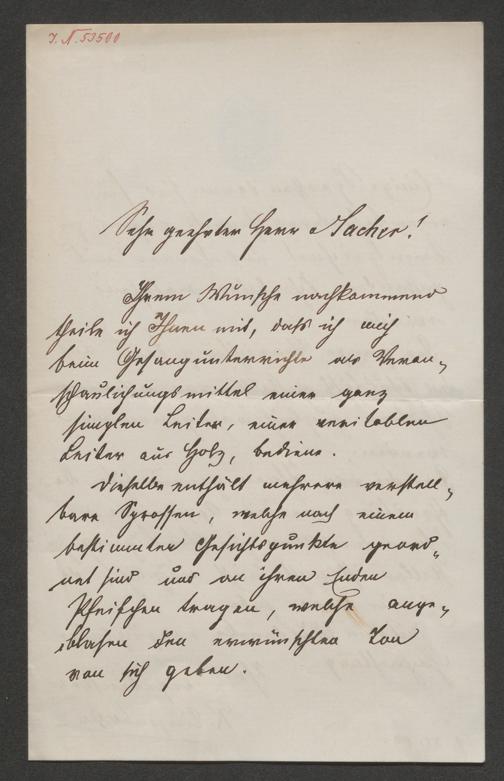 I. N. 53500
Sehr geehrter Herr Sacher!
Ihrem Wunsche nachkommend
theile ich Ihnen mit, daß ich mich
beim Gesangunterrichte als Veran-
schaulichungsmittel einer ganz
simplen Leiter, einer veritablen
Leiter aus Holz, bediene.
Dieselbe enthält mehrere verstell-
bare Sprossen, welche nach einem
bestimmten Gesichtspunkte geord-
net sind und an ihren Enden
Pfeifchen tragen, welche ange-
blasen den erwünschten Ton
von sich geben.